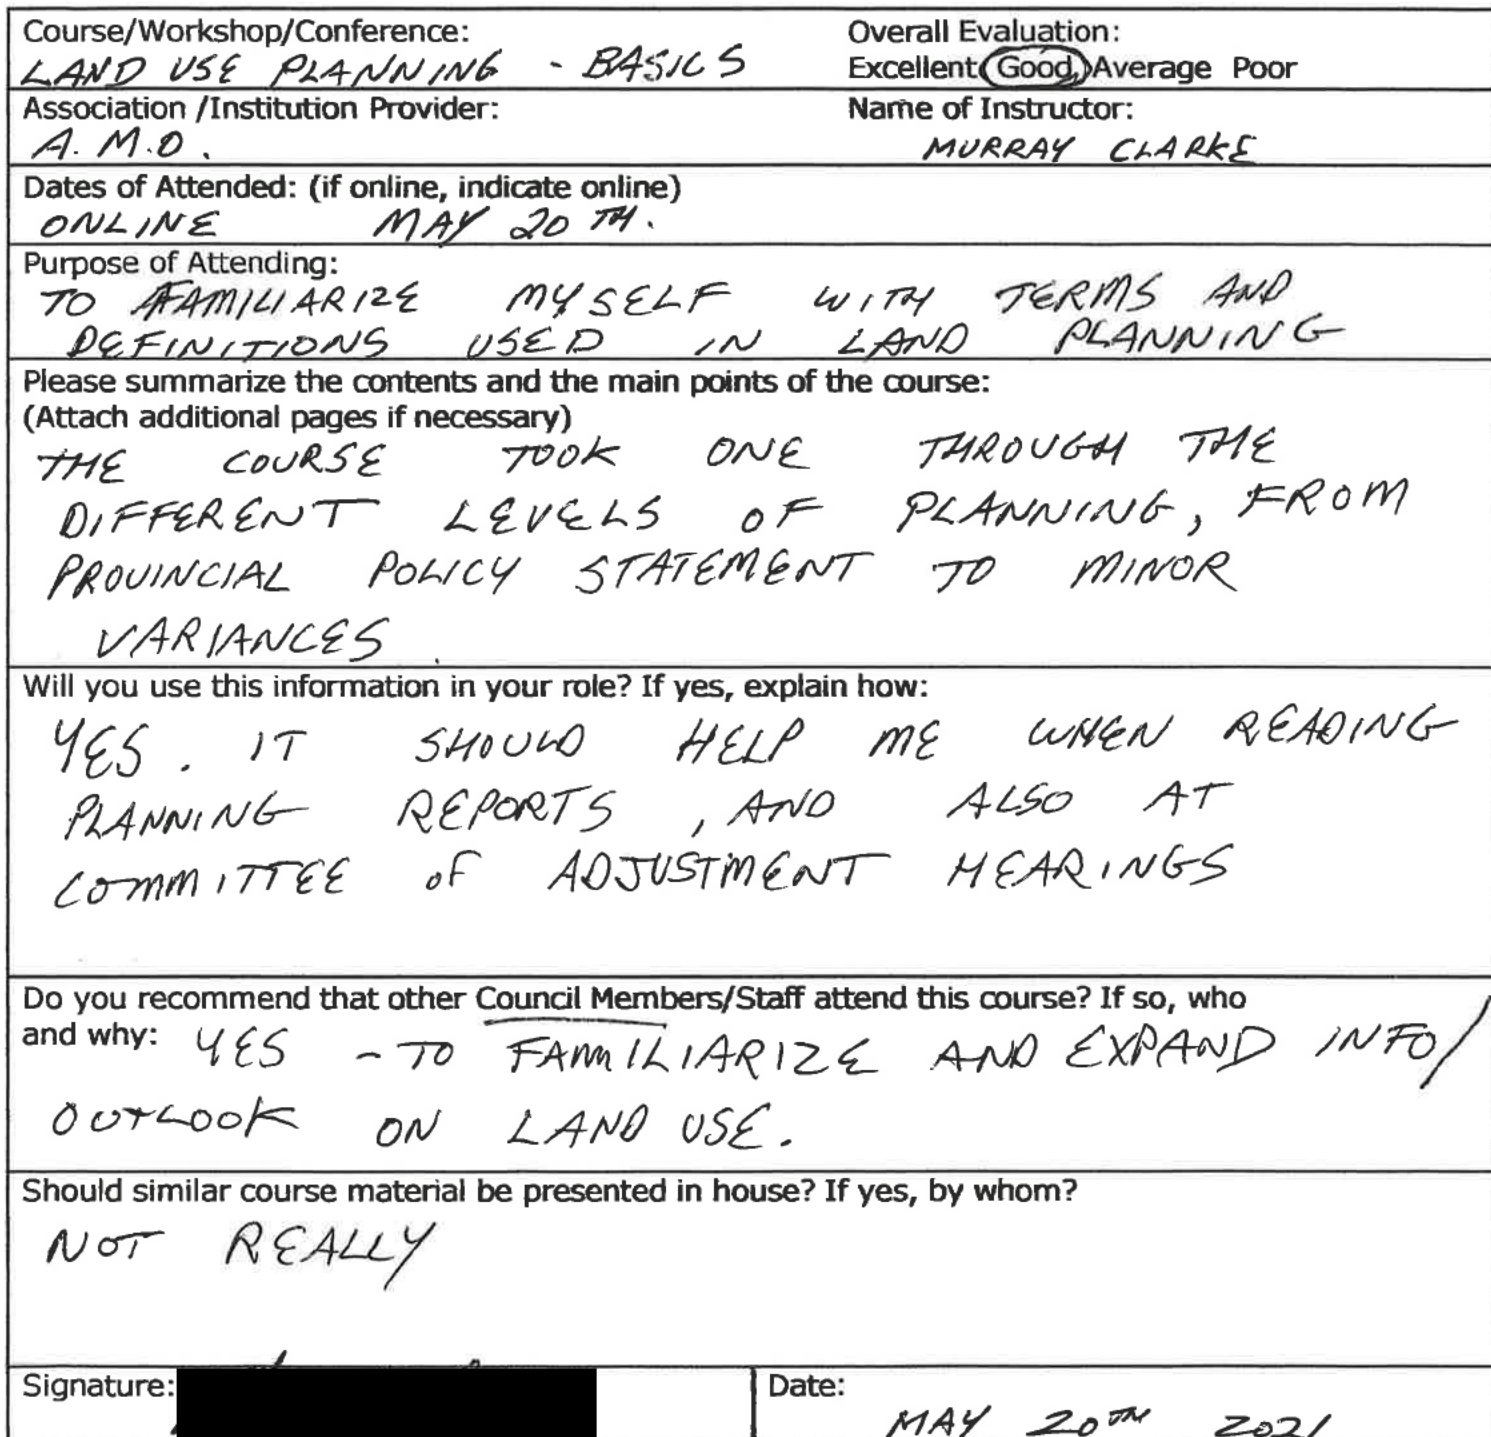 Course/Workshop/Conference: Overall Evaluation:
LAND USE PLANNING - BASICS Excellent Good, Average Poor
Association /Institution Provider: Name of Instructor:
A.M.O. MURRAY CLARKE
Dates of Attended: (if online, indicate online)
ONLINE MAY 20TH.
Purpose of Attending:
TO FAMILIARIZE MYSELF WITH TERMS AND
DEFINITIONS USED IN LAND PLANNING
Please summarize the contents and the main points of the course:
(Attach additional pages if necessary)
THE COURSE TOOK ONE THROUGH THE
DIFFERENT LEVELS OF PLANNING, FROM
PROVINCIAL POLICY STATEMENT TO MINOR
VARIANCES.
Will you use this information in your role? If yes, explain how:
YES. IT SHOULD HELP ME WHEN READING
PLANNING REPORTS, AND ALSO AT
COMMITTEE OF ADJUSTMENT HEARINGS
Do you recommend that other Council Members/Staff attend this course? If so, who
and why: YES - TO FAMILIARIZE AND EXPAND INFO/
OUTLOOK ON LAND USE.
Should similar course material be presented in house? If yes, by whom?
NOT REALLY
Signature: Date:
MAY 20TH 2021